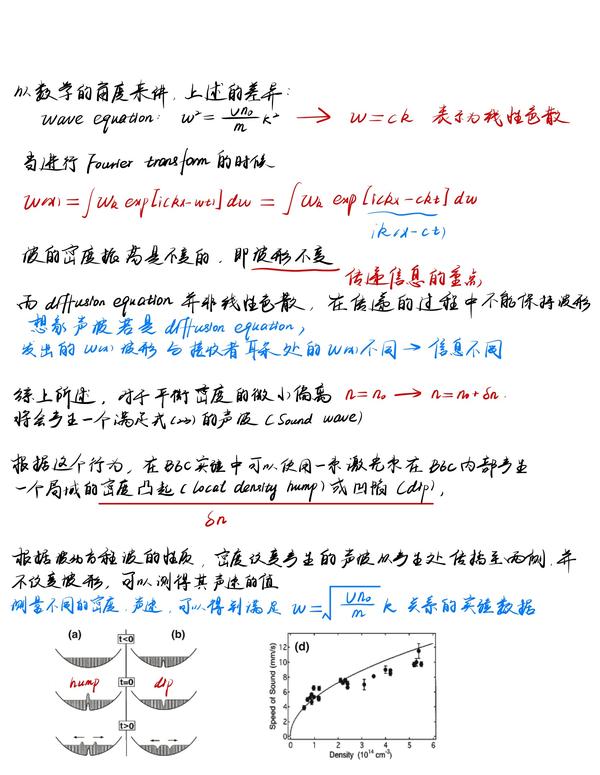 从数学的角度来讲, 上述的差异:
wave equation: ω² = Un₀/m k² → ω = ck 表示为线性色散
当进行 Fourier transform 的时候
u(x) = ∫ Wk exp[ickx-wt)] dw = ∫ Wk exp [ickx-ckt] dw
ik(x-ct)
波的密度振荡是不变的, 即波形不变
传递信息的重点,
而 diffusion equation 并非线性色散, 在传递的过程中不能保持波形
想象声波若是 diffusion equation,
发出的 u(x) 波形与接收者耳朵处的 u(x) 不同 → 信息不同
综上所述, 对于平衡密度的微小偏离 n = n₀ → n = n₀ + δn.
将会产生一个满足式(22)的声波 (Sound wave)
根据这个行为, 在BEC实验中可以使用一束激光束在BEC内部产生
一个局域的密度凸起 (local density hump) 或凹陷 (dip),
δn
根据波动方程波的性质, 密度改变产生的声波从产生处传播至两侧, 并
不改变波形, 可以测得其声速的值
测量不同的密度、声速, 可以得到满足 ω = √(Un₀/m) k 关系的实验数据
(a) (b)
t<0
hump t=0 dip
t>0
(d)
Speed of Sound (mm/s)
12
10
8
6
4
2
0
0 1 2 3 4 5 6
Density (10¹⁴ cm⁻³)